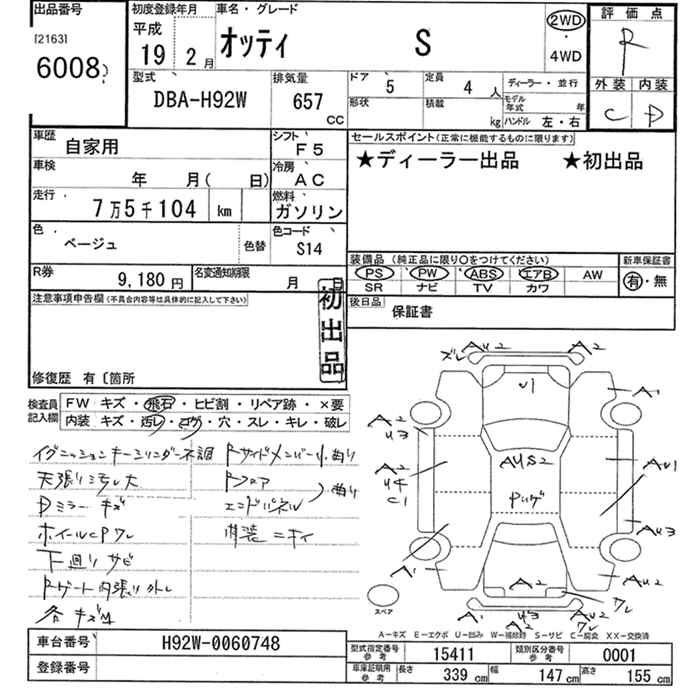 出品番号
[2163]
6008
初度登録年月
平成
19 2月
車名・グレード
オッティ S
2WD
・
4WD
評価点
R
外装 内装
C D
型式
DBA-H92W
排気量
657
CC
ドア 5
定員 4 人
形状
積載 kg
ディーラー・並行
モデル年式 年
ハンドル 左・右
車歴
自家用
シフト
F5
車検
年 月( 日)
冷房
AC
走行
7万5千104 km
燃料
ガソリン
色
ベージュ
色替
色コード
S14
R券
9,180円
名変通知期限
月 日
セールスポイント(正常に機能するものに限ります)
★ディーラー出品 ★初出品
装備品(純正品に限り○をつけてください)
PS PW ABS エアB AW
SR ナビ TV カワ
新車保証書
有・無
後日品
保証書
注意事項申告欄(不具合内容等は具体的に記入して下さい)
初出品
修復歴 有〔箇所
検査員記入欄
FW キズ・飛石・ヒビ割・リペア跡・×要
内装 キズ・汚レ・コゲ・穴・スレ・キレ・破レ
イグニッションキーシリンダー不調
天張り汚レ大
Dミラー キズ
ホイールCPワレ
下廻りサビ
Rゲート内張り外レ
各キズ凹
Rサイドメンバー小曲り
Rフロア
エンドパネル
曲り
ズレ AU2 A2
U1
A2
U3
A1
A2
U4
C1
AUS2
AU1
AU3
A1
A2
AU2
ワレ
A1 U3 AU2
A2 ワレ
スペア
A-キズ E-エクボ U-凹み W-補修跡 S-サビ C-腐食 XX-交換済
車台番号
H92W-0060748
登録番号
型式指定番号
参考
15411
類別区分番号
参考
0001
車庫証明用
参考
長さ 339 cm
幅 147 cm
高さ 155 cm